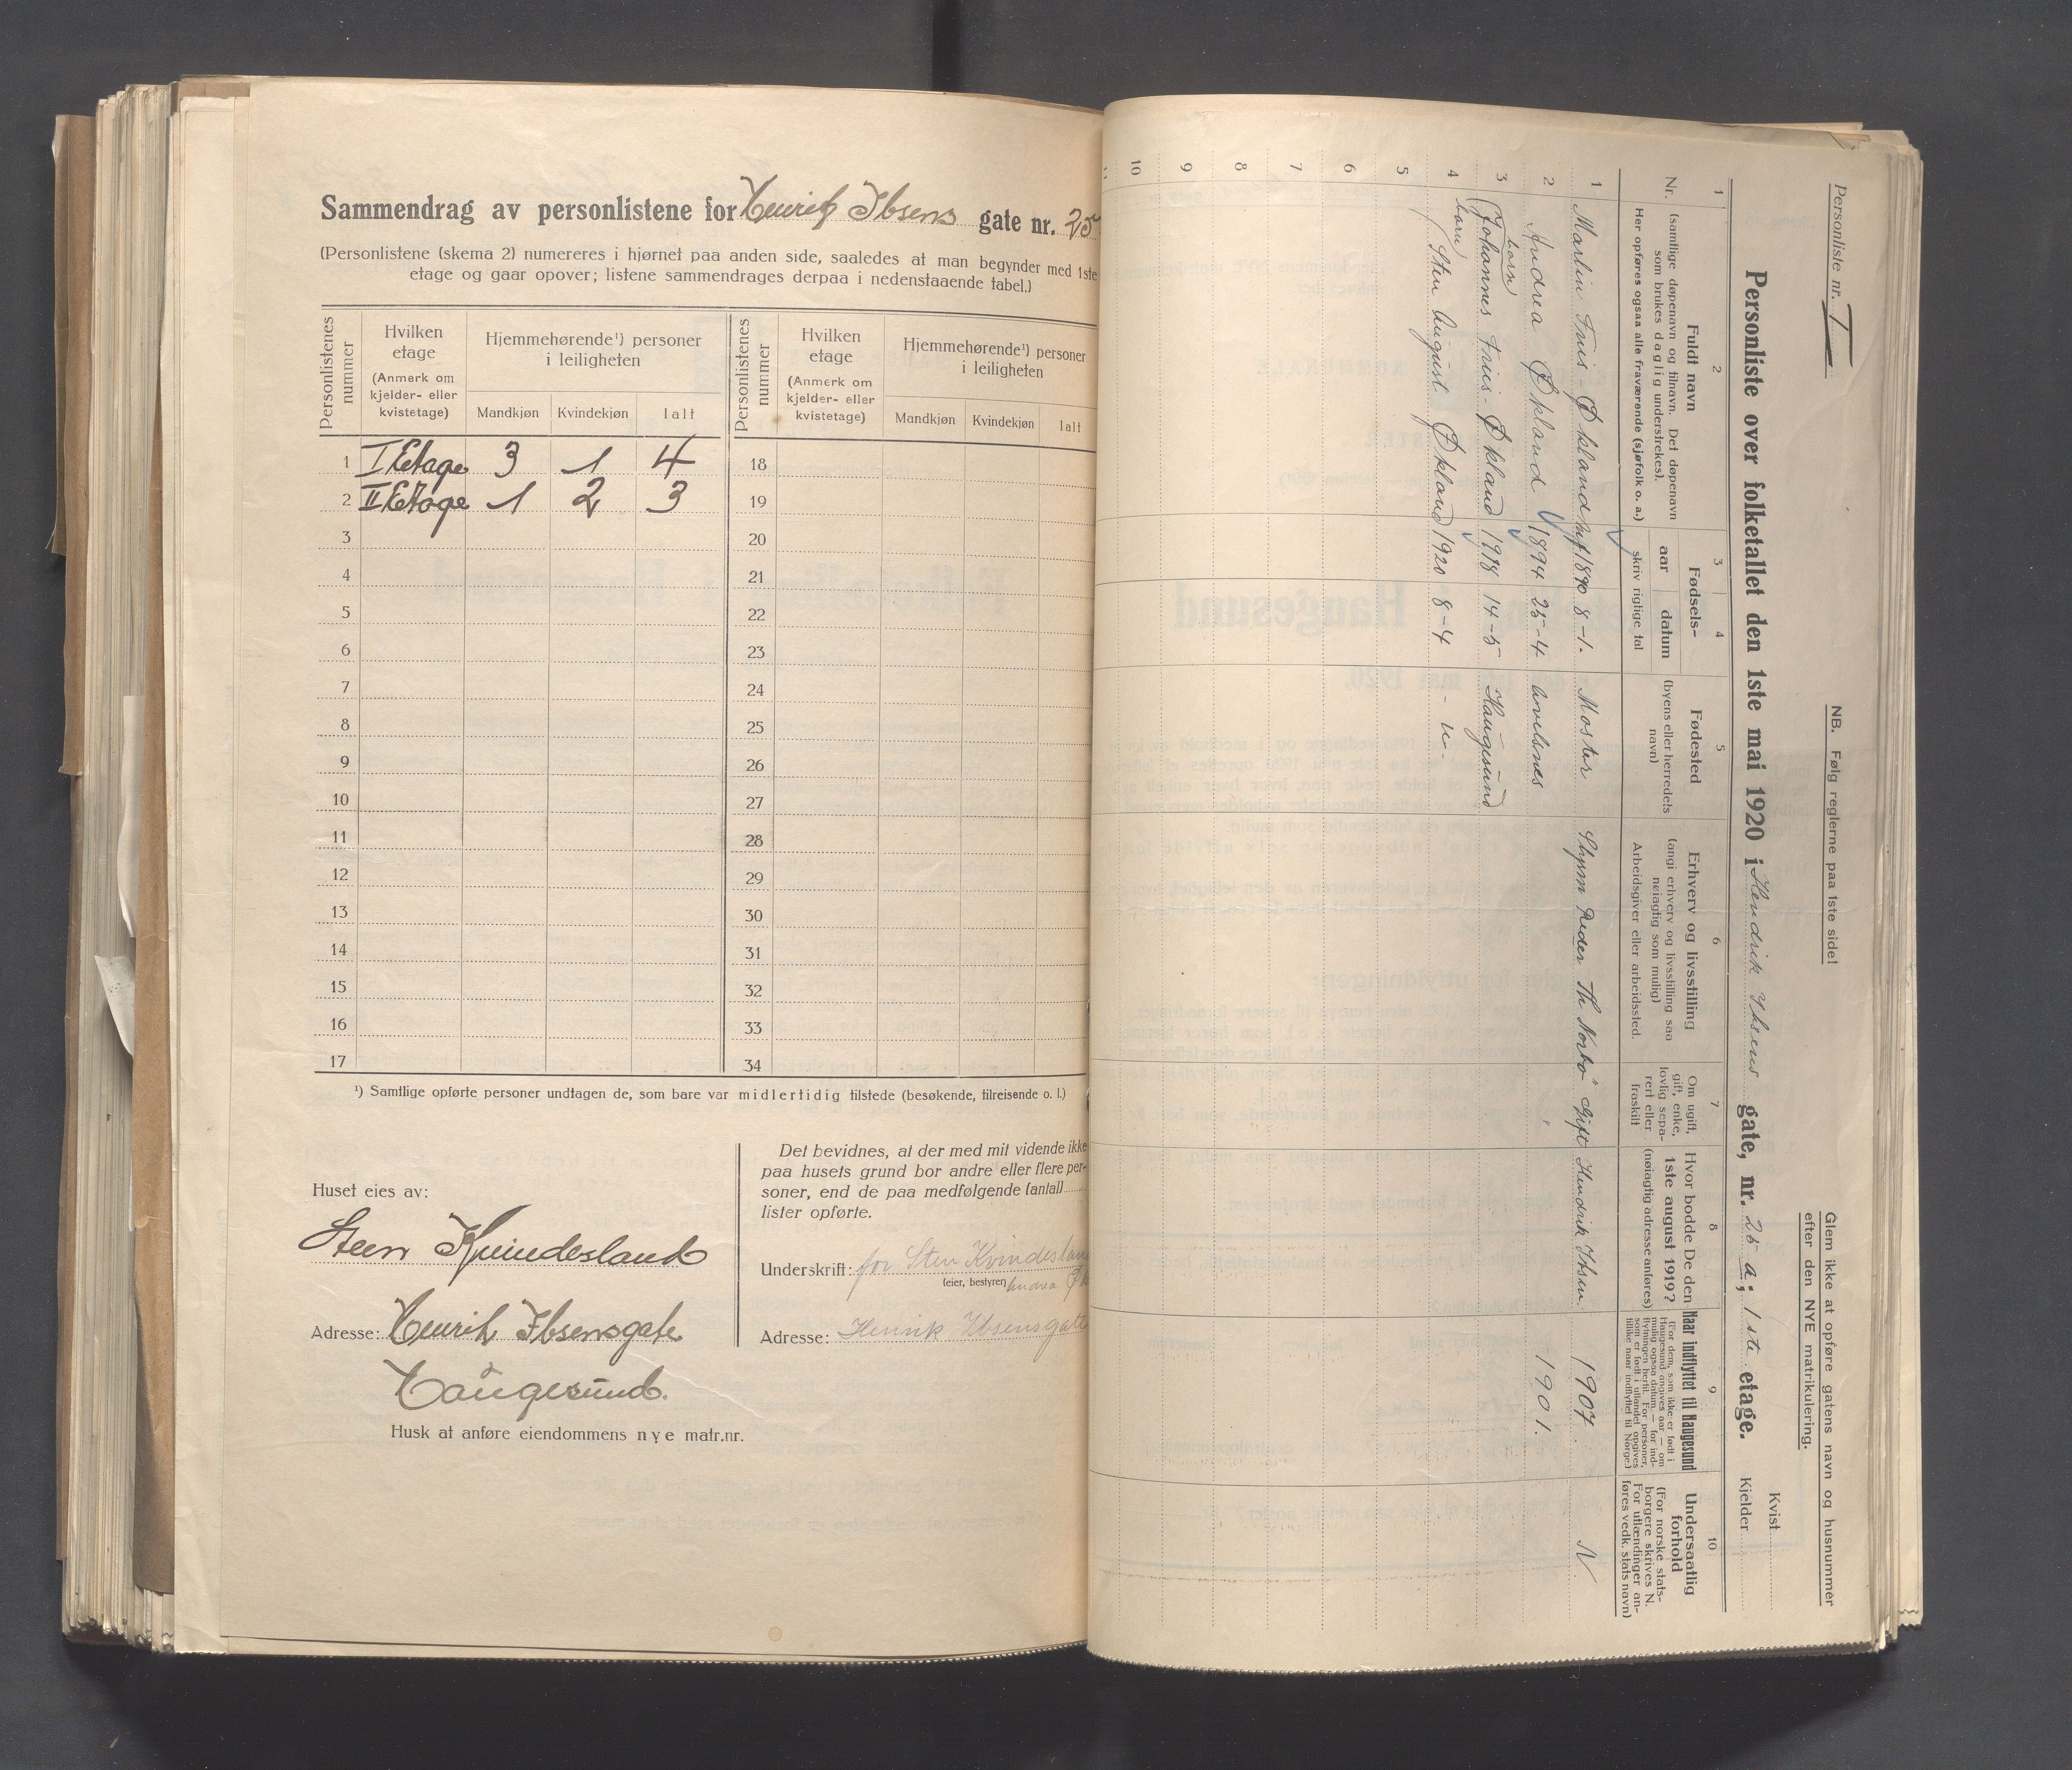 Sammendrag av personlistene for Henrik Ibsens gate nr. 25
(Personlistene (skema 2) numereres i hjørnet paa anden side, saaledes at man begynder med 1ste
etage og gaar opover; listene sammendrages derpaa i nedenstaaende tabel.)
Personlistenes nummer | Hvilken etage (Anmerk om kjelder- eller kvistetage) | Hjemmehørende¹) personer i leiligheten | Personlistenes nummer | Hvilken etage (Anmerk om kjelder- eller kvistetage) | Hjemmehørende¹) personer i leiligheten
Mandkjøn | Kvindekjøn | Ialt | Mandkjøn | Kvindekjøn | Ialt
1 I Etage 3 1 4 18
2 II Etage 1 2 3 19
3 20
4 21
5 22
6 23
7 24
8 25
9 26
10 27
11 28
12 29
13 30
14 31
15 32
16 33
17 34
¹) Samtlige opførte personer undtagen de, som bare var midlertidig tilstede (besøkende, tilreisende o. l.)
Huset eies av:
Steen Kvindesland
Adresse: Henrik Ibsensgate
Haugesund.
Husk at anføre eiendommens nye matr.nr.
Det bevidnes, at der med mit vidende ikke
paa husets grund bor andre eller flere per-
soner, end de paa medfølgende (antal)
lister opførte.
Underskrift: for Sten Kvindesland
(eier, bestyrer) Andrea
Adresse: Henrik Ibsensgatte
Personliste nr. I
NB. Følg reglerne paa 1ste side!
Glem ikke at opføre gatens navn og husnummer
efter den NYE matrikulering.
Personliste over folketallet den 1ste mai 1920 i Hendrik Ibsens gate, nr. 25 a; 1ste etage.
Kvist
Kjelder
1 2 3 4 5 6 7 8 9 10
Nr.
Fuldt navn
(samtlige døpenavn og tilnavn. Det døpenavn
som brukes daglig understrekes).
Her opføres ogsaa alle fraværende (sjøfolk o. a.)
Fødsels-
aar | datum
skriv rigtige tal
Fødested
(byens eller herredets
navn)
Erhverv og livsstilling
(angi erhverv og livsstilling saa
nøiagtig som mulig)
Arbeidsgiver eller arbeidssted.
Om ugift,
gift, enke,
lovlig sepa-
rert eller
fraskilt
Hvor bodde De den
1ste august 1919?
(nøiagtig adresse anføres)
Naar indflyttet til Haugesund
(For dem, som ikke er født i
Haugesund angives aar — om
mulig ogsaa datum — for ind-
flytningen hertil. For personer,
som er født i utlandet opgives
tillike naar indflyttet til Norge.)
Undersaatlig
forhold
(For norske stats-
borgere skrives N.
For utlændinger an-
føres vedk. stats navn)
1 Martin Friis-Økland 1890 8-1. Moster Gift Hendrik Ibsen 1907 N.
2 Andrea Økland 1894 25-4 1901.
barn
3 Johannes Friis-Økland 1918 14-5 Haugesund
barn
4 Sten August Økland 1920 8-4 - " -
5
6
7
8
9
10
11